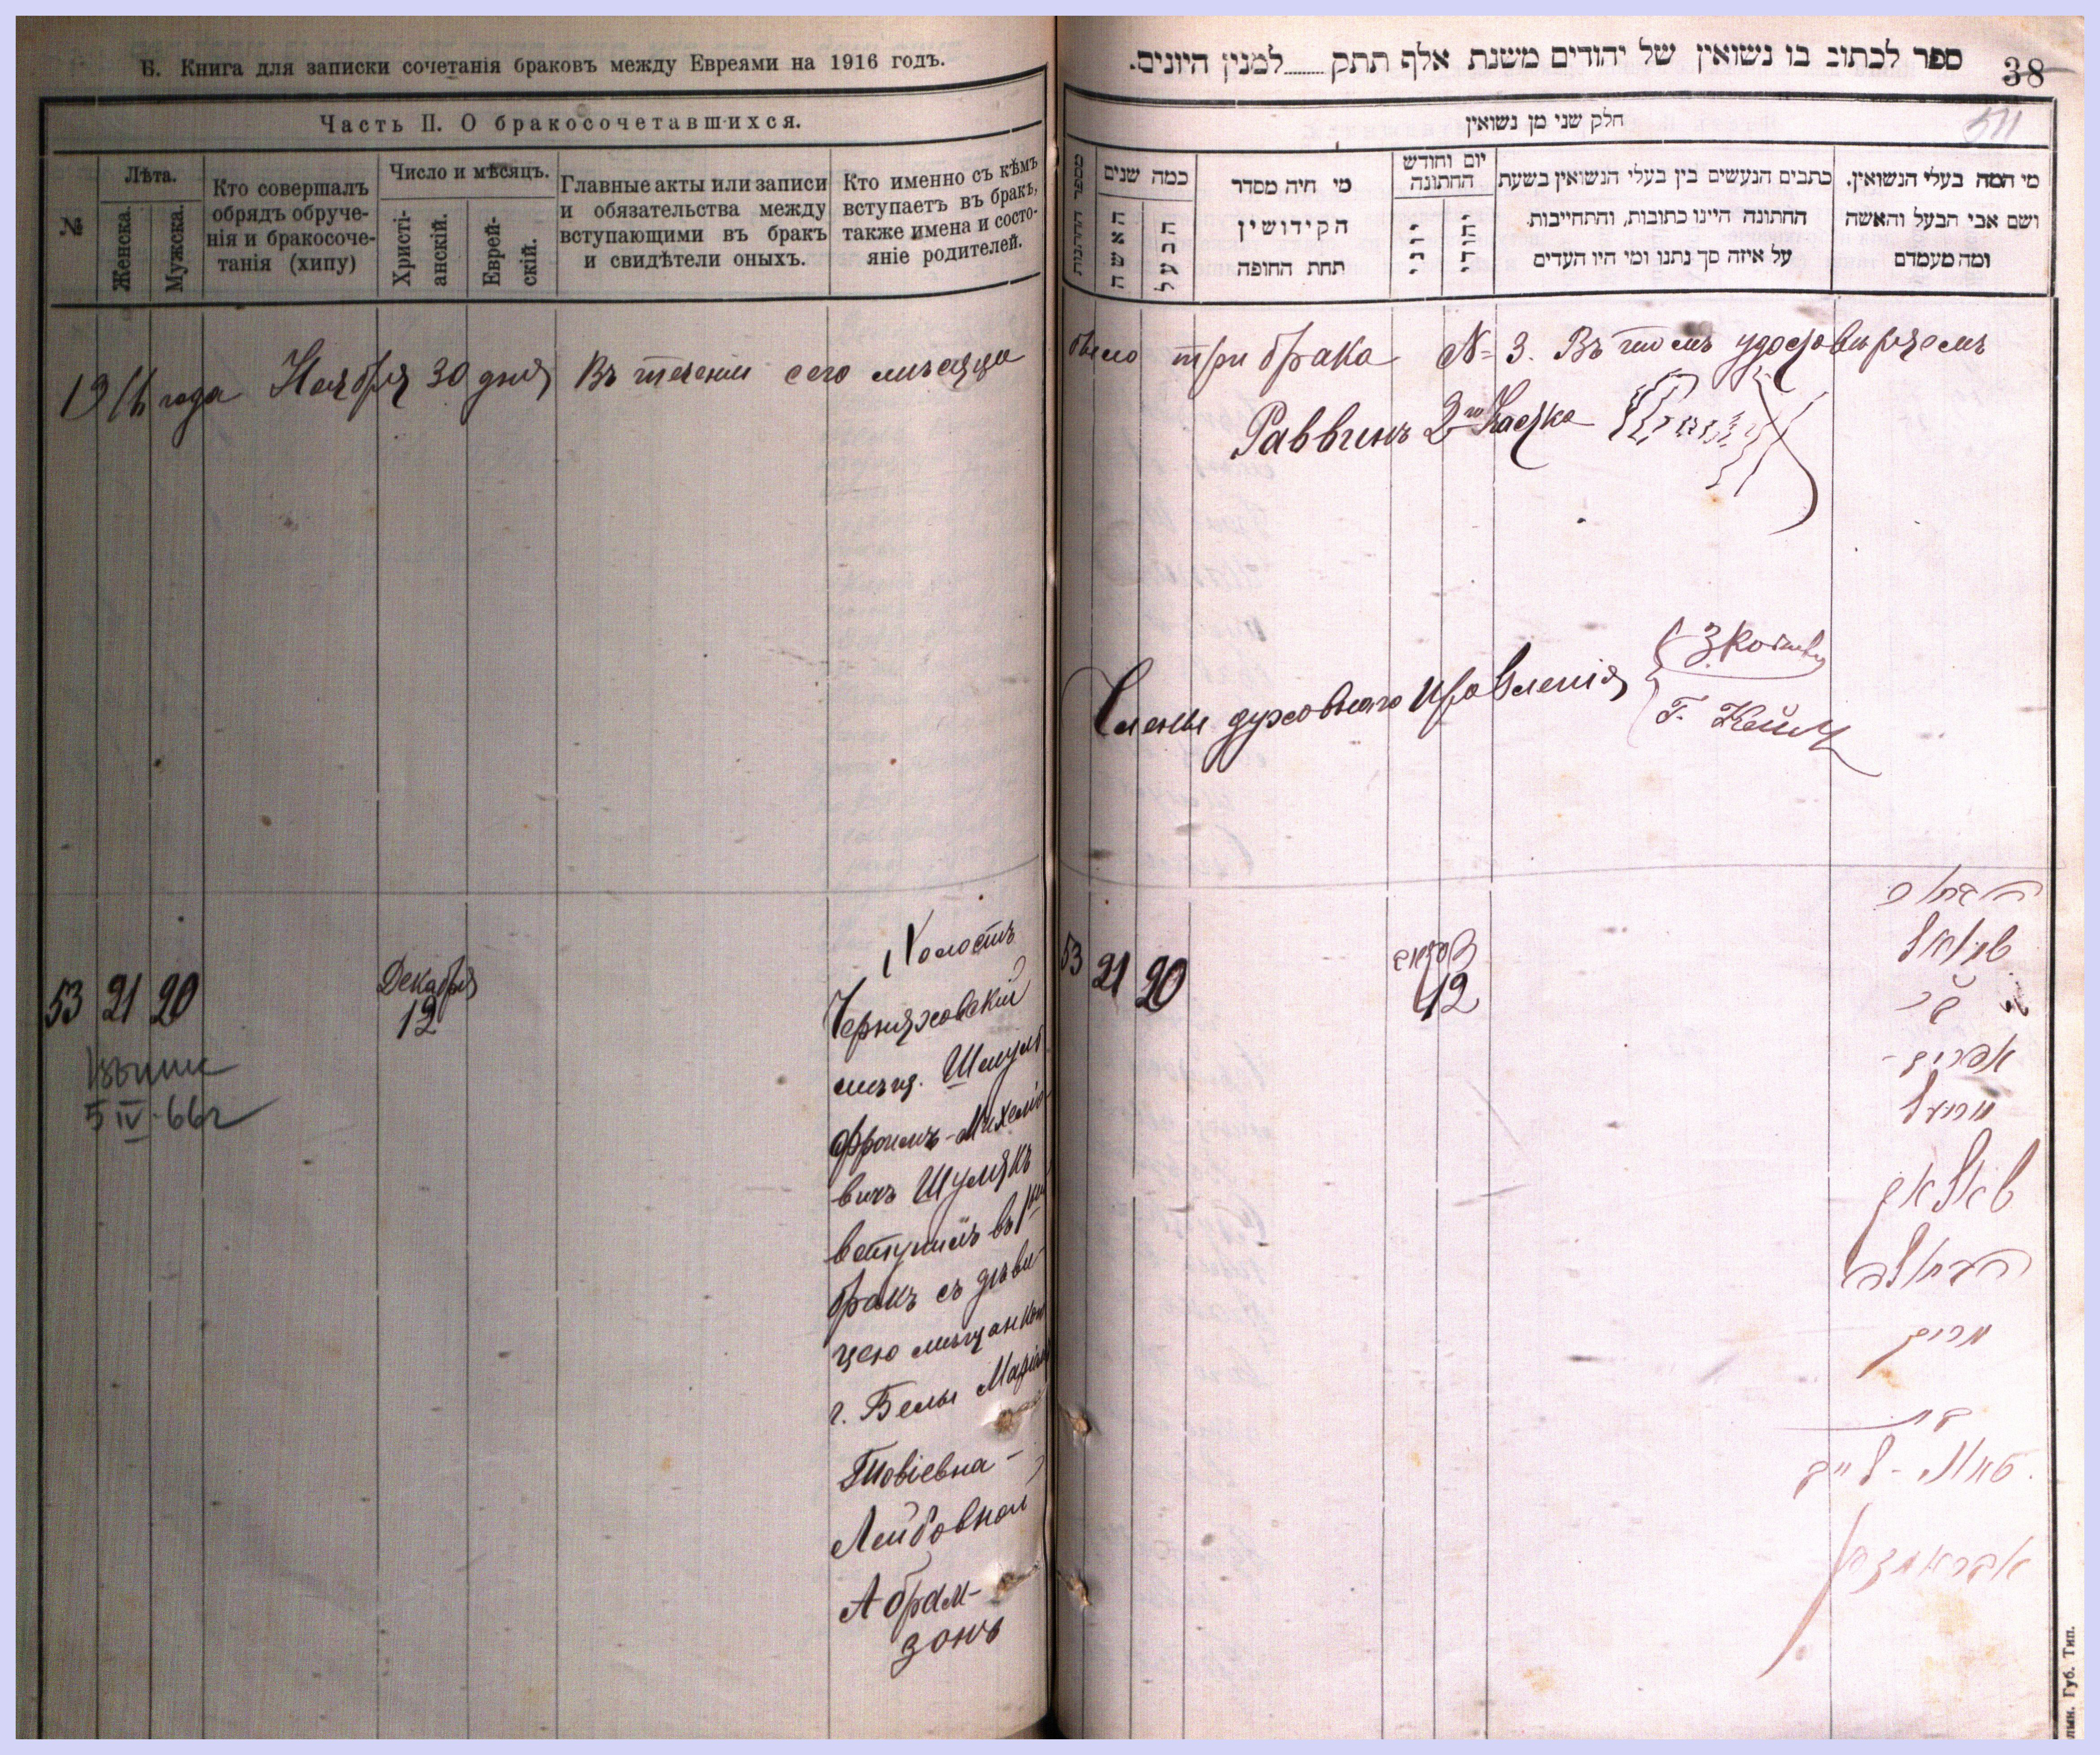 Б. Книга для записки сочетанія браковъ между Евреями на 1916 годъ.
Часть II. О бракосочетавшихся.
№
Лѣта.
Женска.
Мужска.
Кто совершалъ
обрядъ обруче-
нія и бракосоче-
танія (хипу)
Число и мѣсяцъ.
Христі-
анскій.
Еврей-
скій.
Главные акты или записи
и обязательства между
вступающими въ бракъ
и свидѣтели оныхъ.
Кто именно съ кѣмъ
вступаетъ въ бракъ,
также имена и состо-
яніе родителей.
1916 года Ноября 30 дня Въ теченіи сего мѣсяца
53 21 20
Декабря
12
5 IV-66г
Холостъ
Черняховскій
мѣщ. Шмуль
Фроимъ-Михеліо-
вичъ Шулякъ
вступилъ въ 1й
бракъ съ дѣви-
цею мѣщанкой
г. Белы
Товіевна-
Лейбовной
Абрам-
зонъ
ספר לכתוב בו נשואין של יהודים משנת אלף תתק......למנין היונים.
38
חלק שני מן נשואין
511
מספר החתונות
כמה שנים
האשה
הבעל
מי היה מסדר
הקידושין
תחת החופה
יום וחודש
החתונה
יוני
יהודי
כתבים הנעשים בין בעלי הנשואין בשעת
החתונה היינו כתובות, והתחייבות
על איזה סך נתנו ומי היו העדים
מי המה בעלי הנשואין.
ושם אבי הבעל והאשה
ומה מעמדם
было три брака № 3. Въ томъ удостовѣряемъ
Раввинъ 2го Участка
Члены духовнаго Правленія
53 21 20
12
הבחור
שמואל
בר
אפרים-
מיכעל
שולאק
הבתולה
מרים
בת
טוביה-לייב
אבראמזאן
лын. Губ. Тип.